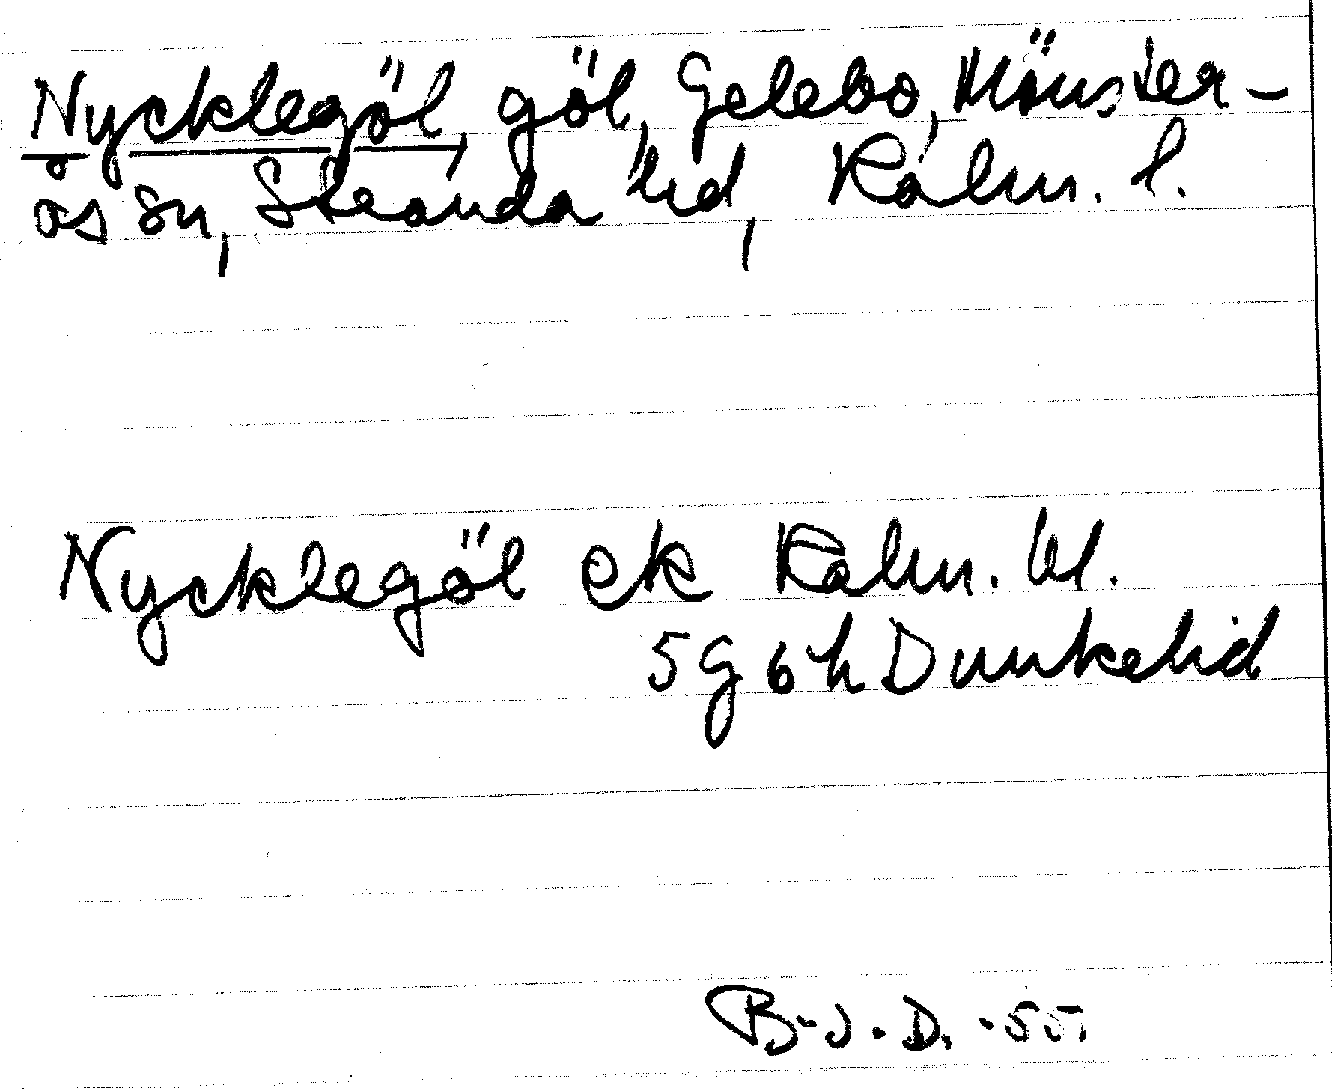 Nycklegöl, göl, Gelebo, Mönster-
ås sn, Stranda hd, Kalm. l.
Nycklegöl ek Kalm. bl.
5g 6h Dunkehid
B-J. D. -55.